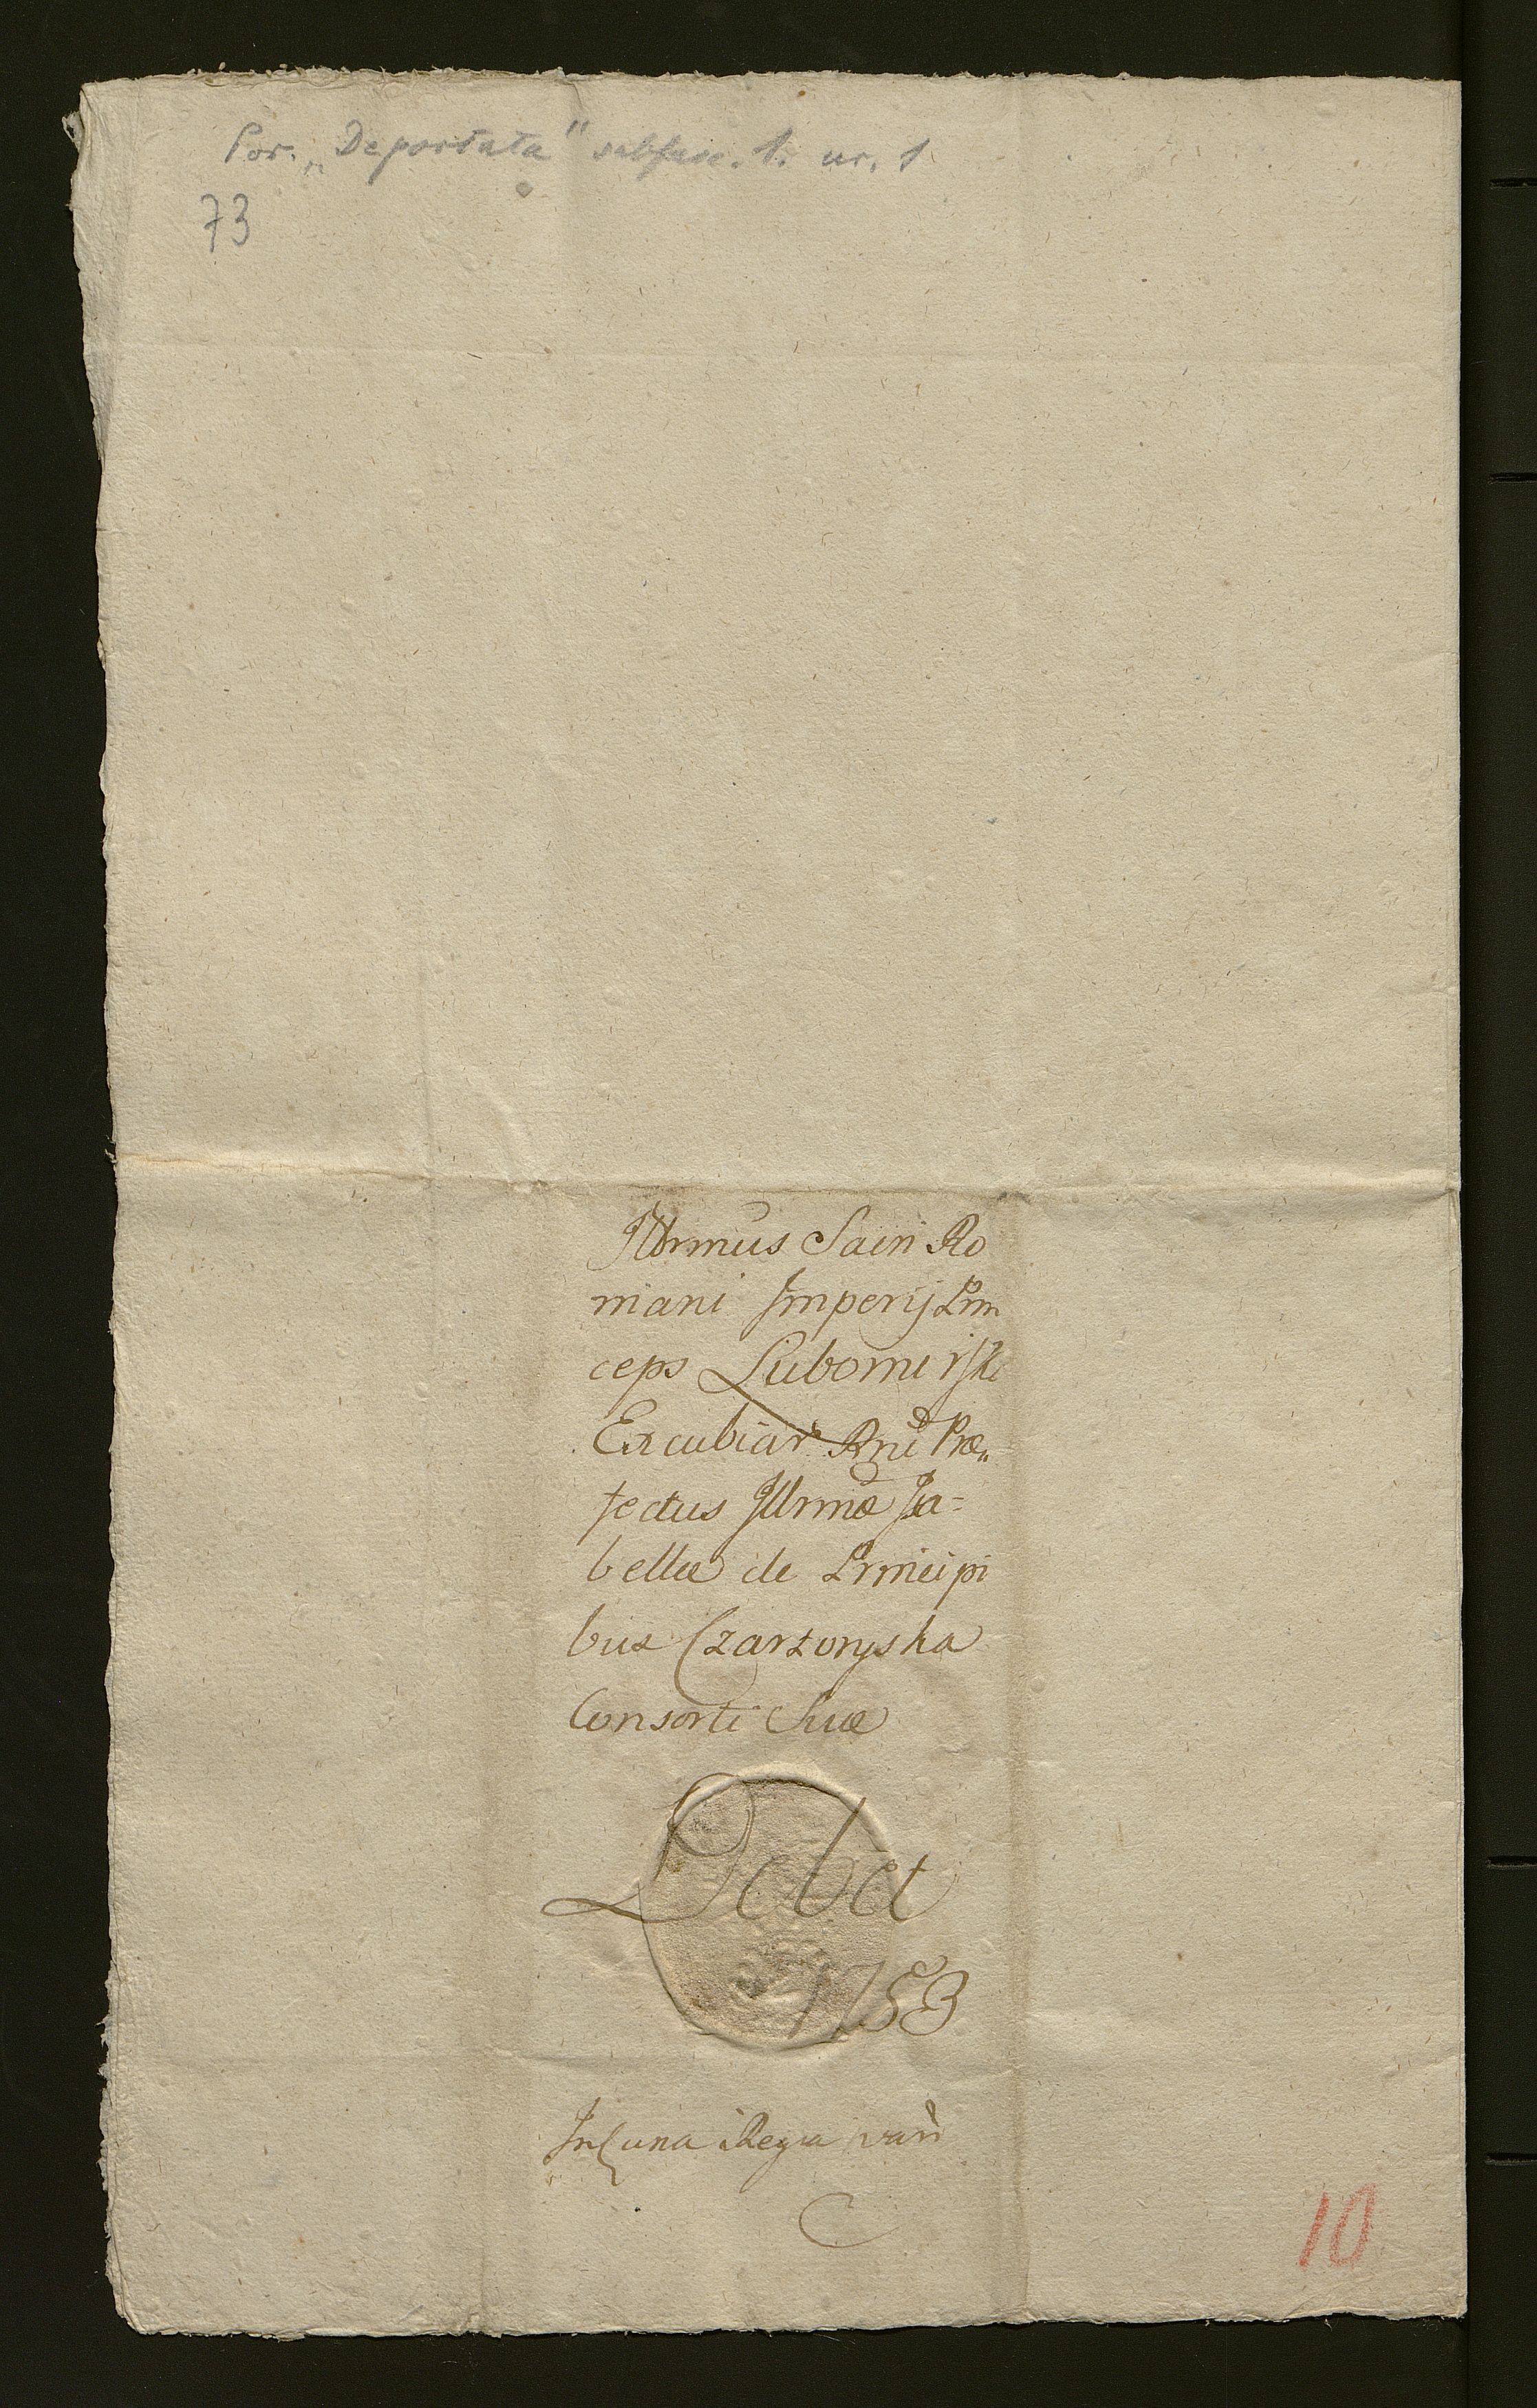 Por. „Deportata" subfasc. 1. nr. 1
73
Illrmus Sacri Ro
mani Imperij Prin
ceps Lubomirski
Excubiar Rni Præ„
fectus Illrmæ Isa=
bellæ de Principi
bus Czartoryska
Consorti Suæ
Debet
1753
una Regia
10